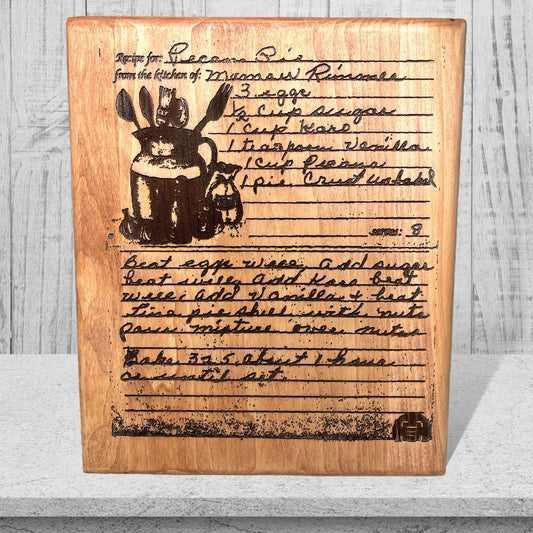 Recipe for: Pecan Pie
from the kitchen of: Mamaw Rimmer
3 eggs
½ Cup sugar
1 Cup Karo
1 teaspoon Vanilla
1 Cup Pecans
1 pie Crust Unbaked
serves: 8
Beat eggs well, add sugar
beat well, add Karo beat
well, add Vanilla & beat
Line pie shell with nuts
pour mixture over nuts
Bake 325 about 1 hour
or until set.